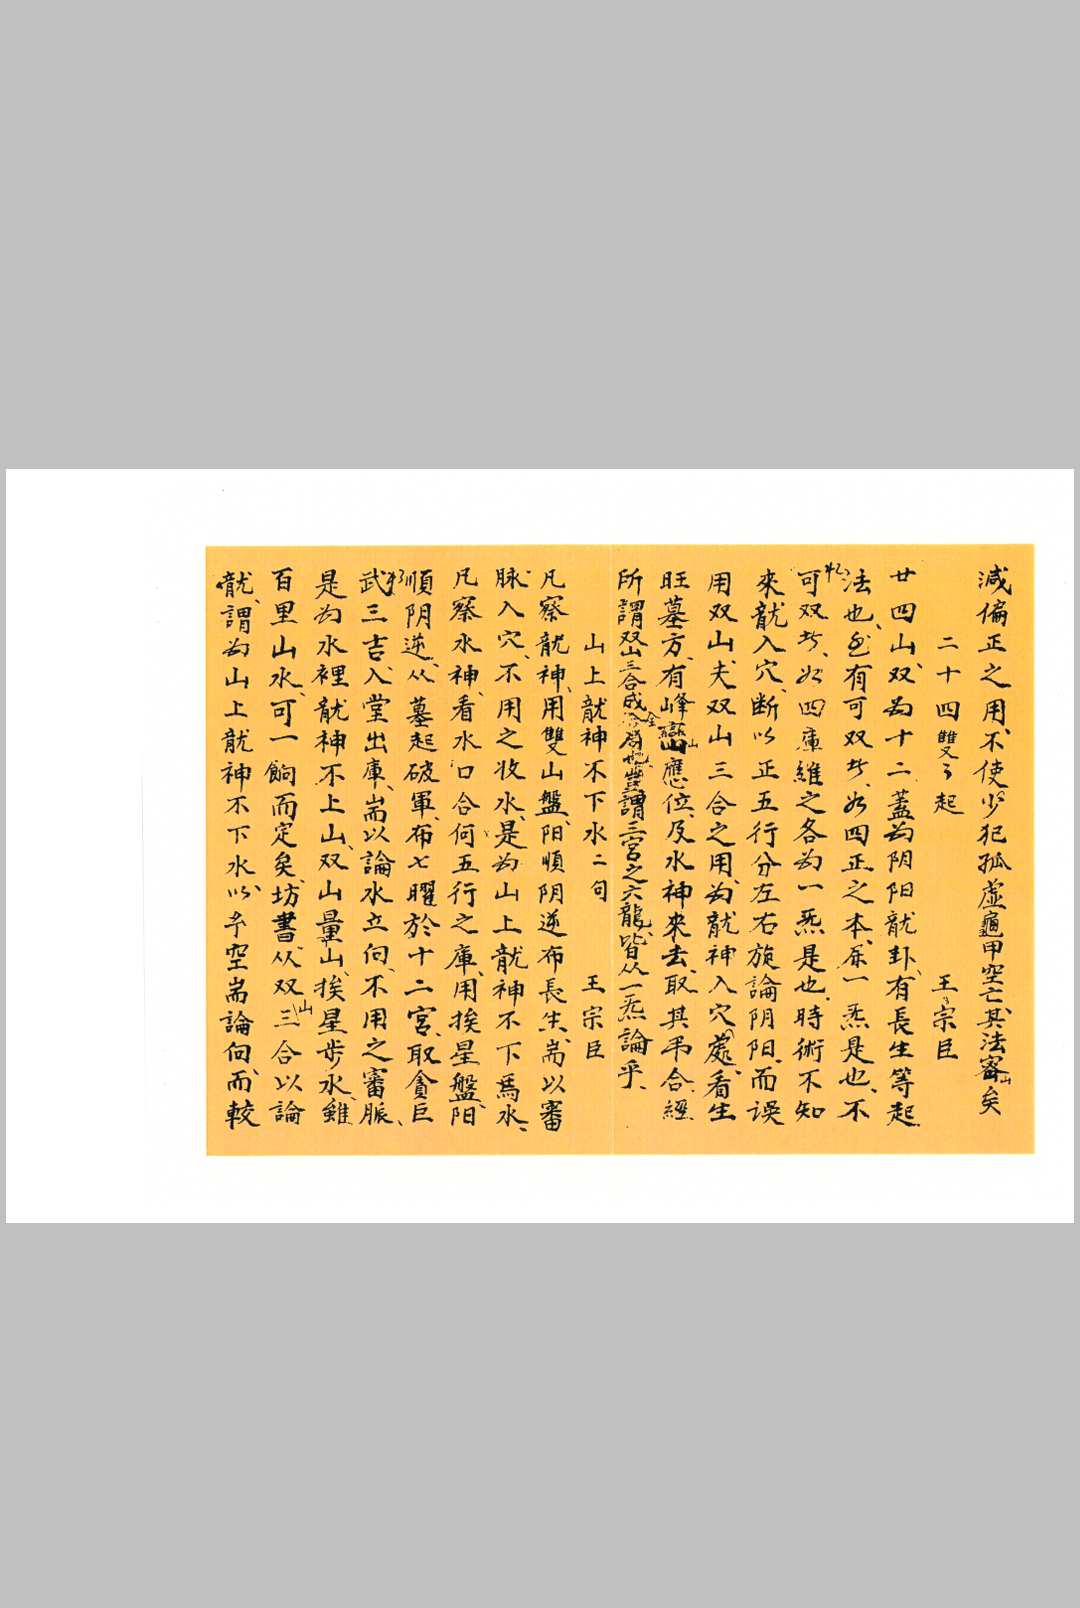 減偏正之用、不使少犯孤虛龜甲空亡、其法審矣
二十四雙々起　王宗臣
廿四山、双為十二、蓋為阴阳龍卦、有長生等起
法也、有可双者、如四正之本、一炁是也、不
可双者、如四庫維之各為一炁是也、時術不知
來龍入穴、断以正五行分左右旋論阴阳、而误
用双山、夫双山三合之用、為龍神入穴處、看生
旺墓方、有峰巒應位、及水神來去、取其弔合、經
所謂双山三合成、豈謂三宮之六龍、皆从一炁論乎、
山上龍神不下水二句　王宗臣
凡察龍神、用雙山盤、阳順阴逆、布長生、耑以審
脉入穴、不用之收水、是為山上龍神不下焉水、
凡察水神、看水口合何五行之庫、用挨星盤、阳
順阴逆、从墓起破軍、布七曜於十二宮、取貪巨
武三吉、入堂出庫、耑以論水立向、不用之審脈、
是為水裡龍神不上山、双山量山、挨星步水、雖
百里山水、可一餉而定矣、坊書从双山三合以論
龍、謂為山上龍神不下水、以空耑論向、而較